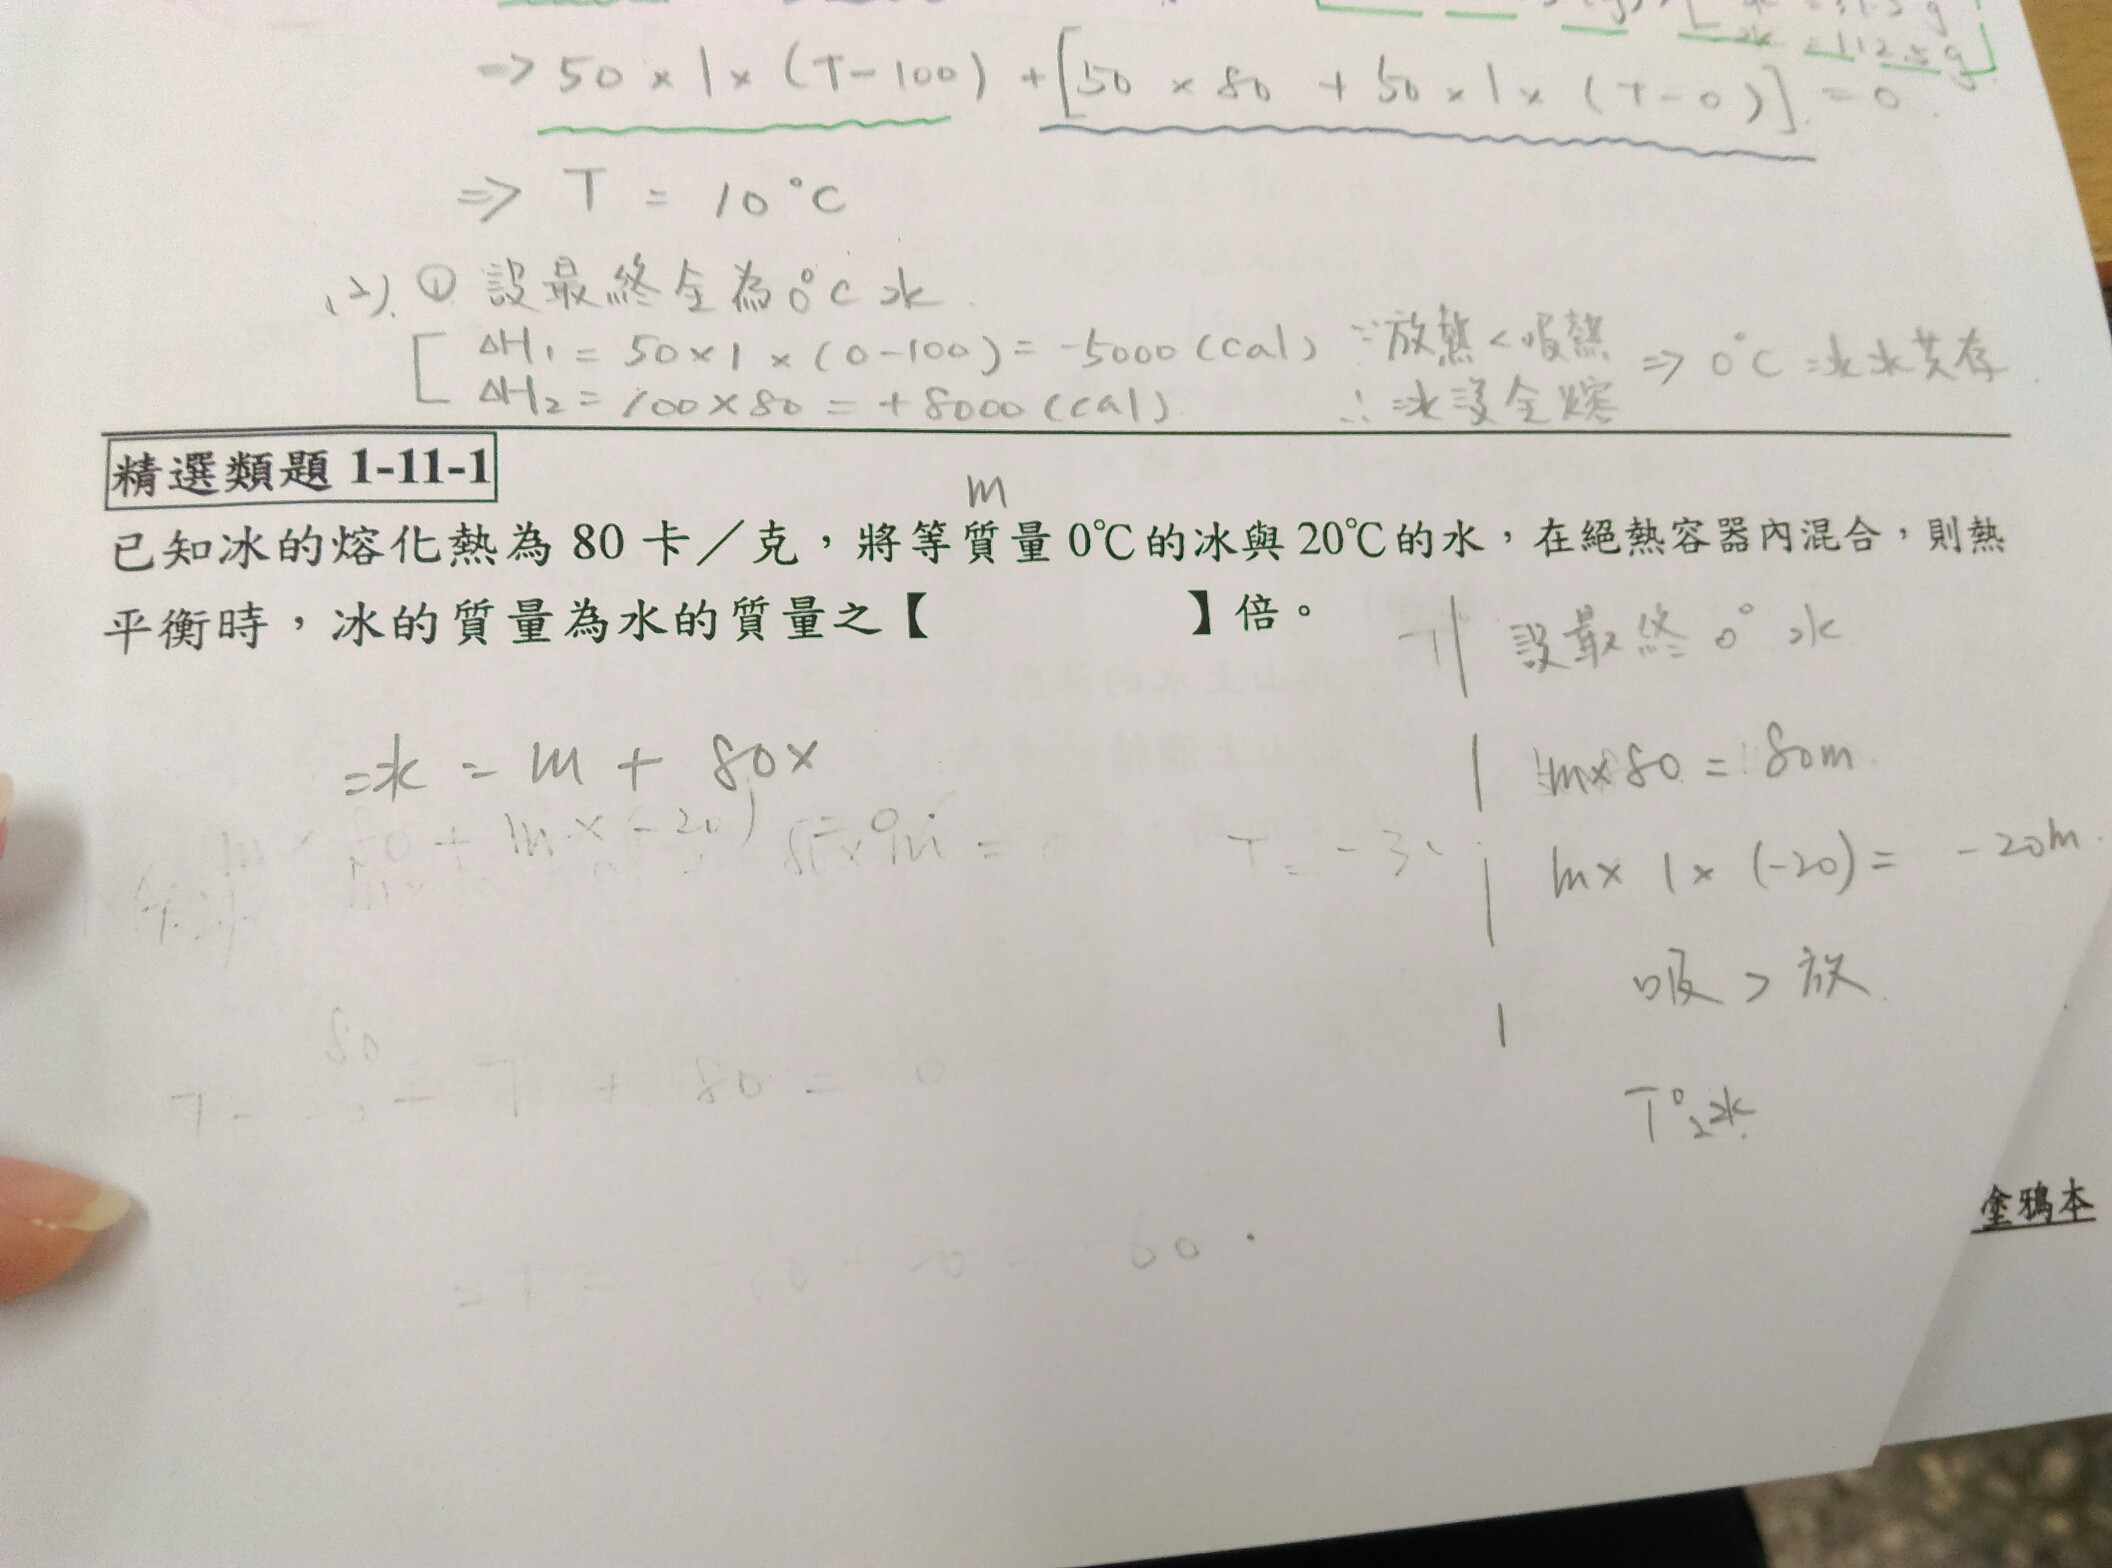 ⇒ 50 × 1 × (T-100) + [50 × 80 + 50 × 1 × (T-0)] = 0
⇒ T = 10°C
(2). ① 設最終全為0°C水.
ΔH₁ = 50×1×(0-100) = -5000 (cal) ∵放熱<吸熱 ⇒ 0°C 冰水共存.
ΔH₂ = 100×80 = +8000 (cal) ∴冰沒全熔
精選類題 1-11-1
m
已知冰的熔化熱為 80 卡／克，將等質量 0℃的冰與 20℃的水，在絕熱容器內混合，則熱
平衡時，冰的質量為水的質量之【 】倍。
設最終 0° 水
冰 = m + 80x
m×80 = 80m
m× 1 × (-20) = -20m.
吸 > 放
80
+ T + 80 = 0
T°冰
塗鴉本